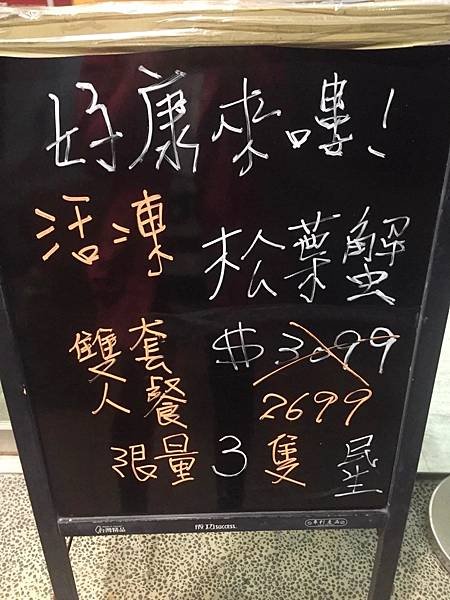 好康來嘍!
活凍 松葉蟹
雙人套餐 $3099
2699
限量3隻
成功success.